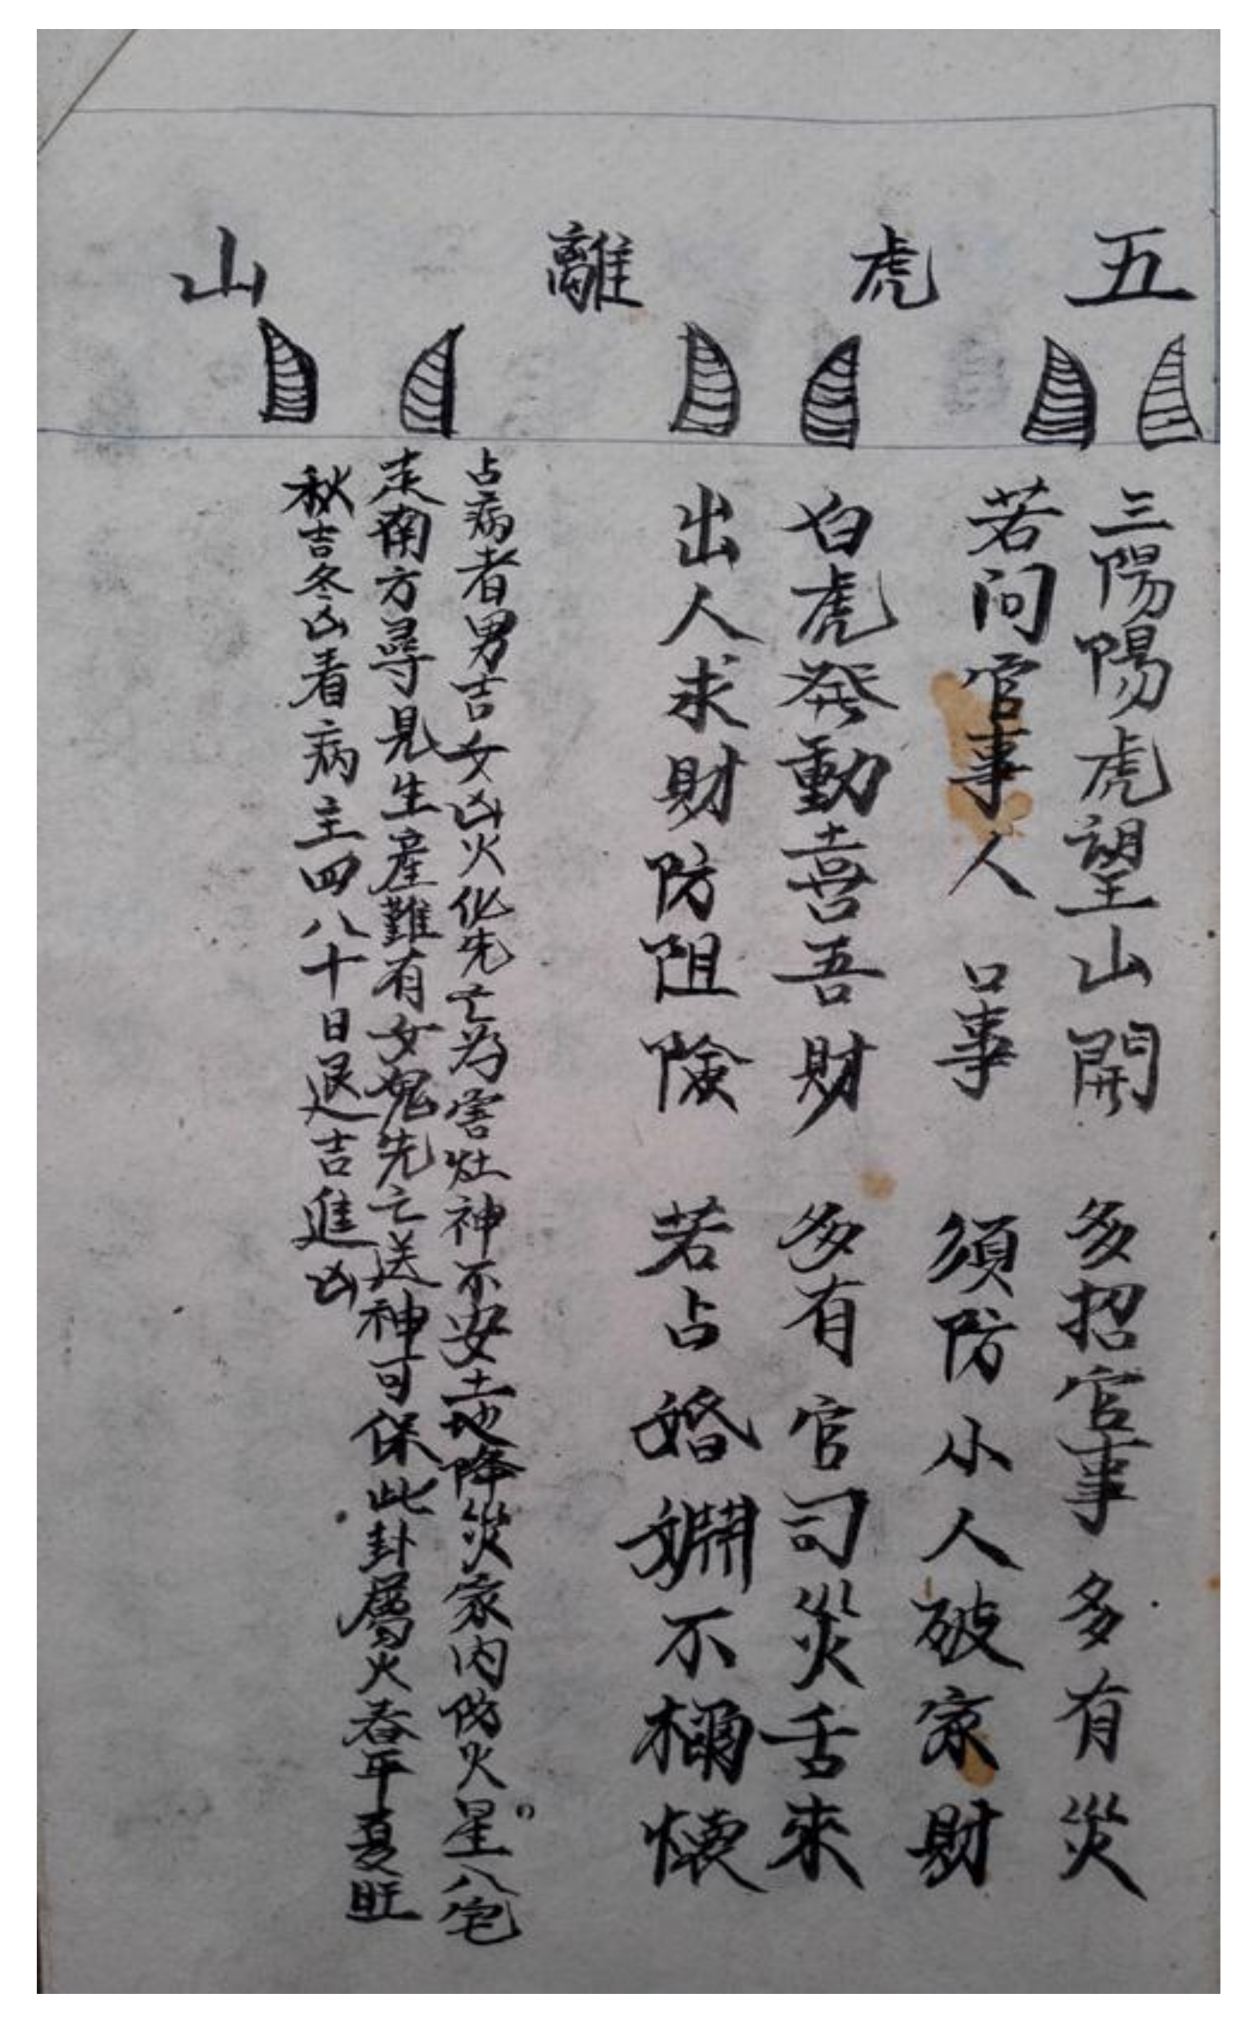 五虎離山
三陽陽虎望山開 多招官事多有災
若问官事人口事 須防小人破家財
白虎發動喜吾財 多有官司災舌來
出人求財防阻險 若占婚姻不稱懷
占病者男吉女凶火化先亡为害灶神不安土地降災家内防火星入宅
走南方尋見生產難有女鬼先亡送神可保此卦屬火春平夏旺
秋吉冬凶看病主四八十日退吉進凶